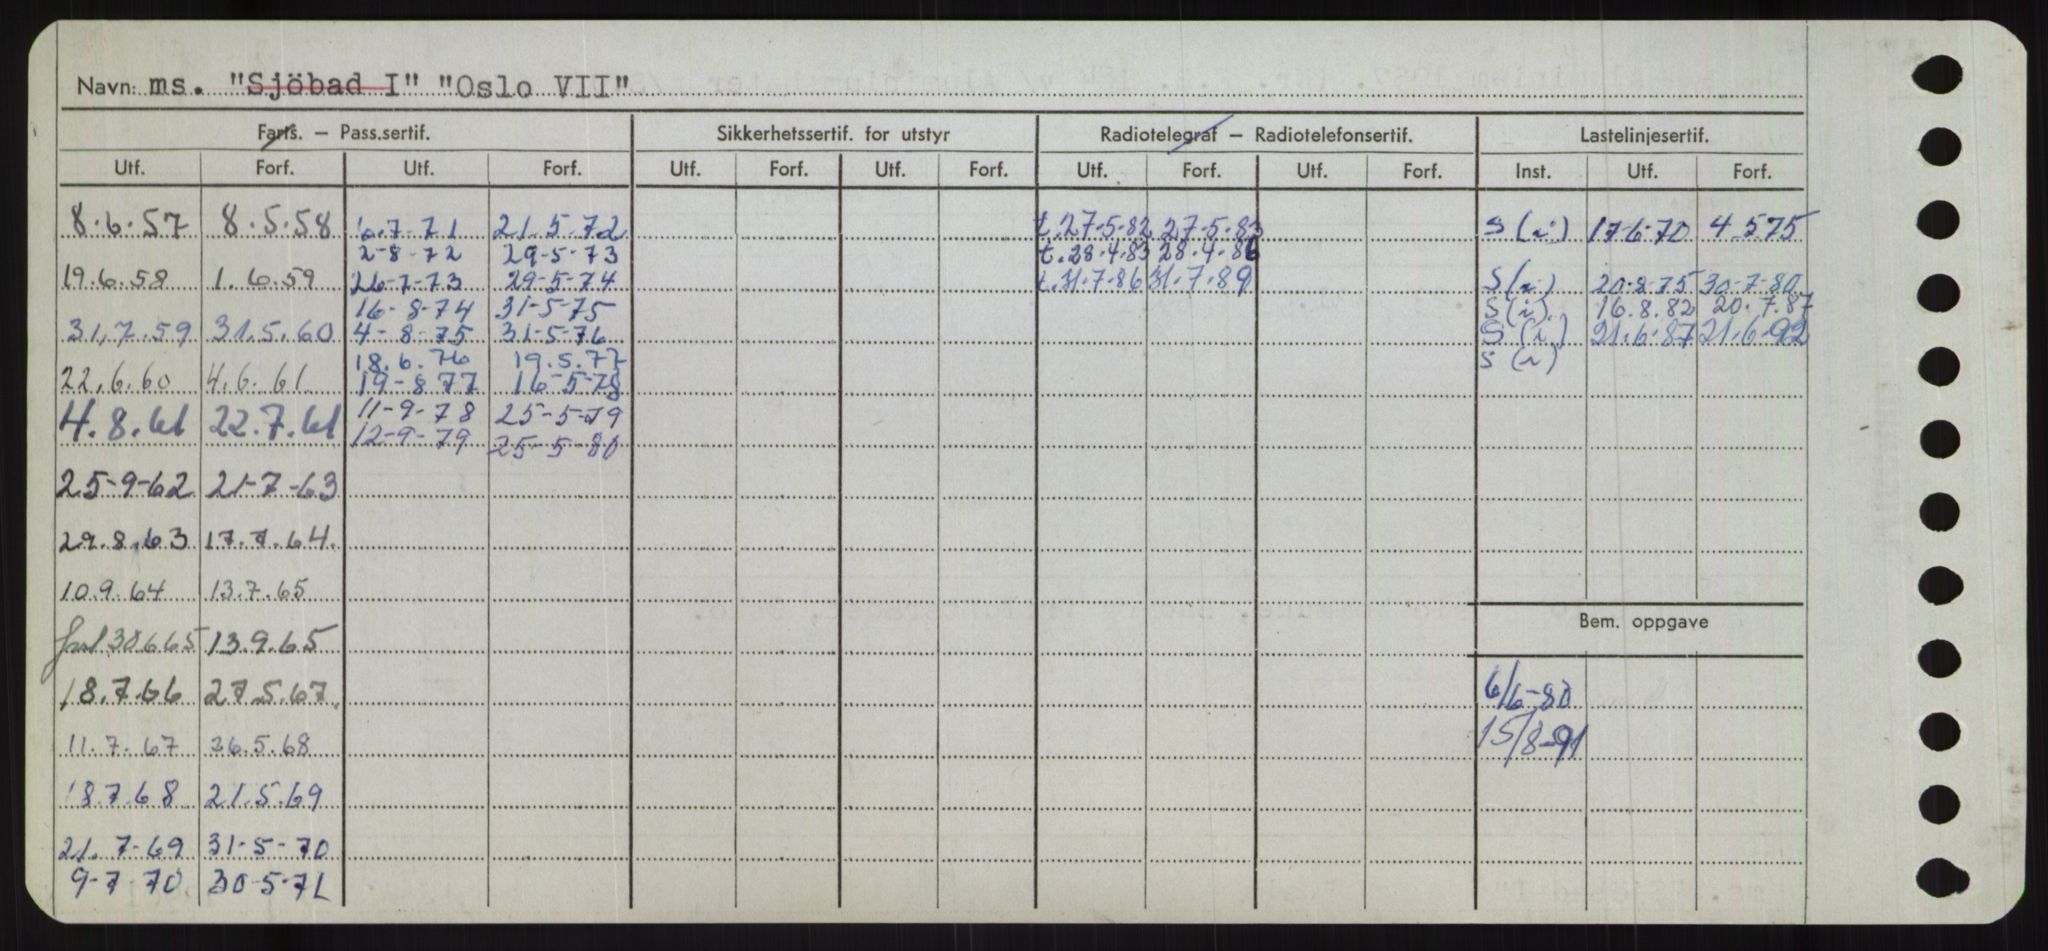 Navn: ms. "Sjöbad I" "Oslo VII"
Farts. – Pass.sertif. Sikkerhetssertif. for utstyr Radiotelegraf – Radiotelefonsertif. Lastelinjesertif.
Utf. Forf. Utf. Forf. Utf. Forf. Utf. Forf. Utf. Forf. Utf. Forf. Inst. Utf. Forf.
8.6.57 8.5.58 6.7.71 21.5.72 t.27-5-82 27-5-83 S (i) 17-6-70 4.5.75
2-8-72 29-5-73 t.28.4.83 28.4.86
19.6.58 1.6.59 26-7-73 29-5-74 t.31.7.86 31.7.89 S (i) 20-8-75 30-7-80
16-8-74 31-5-75 S (i) 16.8.82 20.7.87
31.7.59 31.5.60 4-8-75 31-5-76 S (i) 21.6.87 21.6-92
18.6.76 19.5.77 S (i)
22.6.60 4.6.61 19-8-77 16-5-78
4.8.61 22.7.61 11-9-78 25-5-79
12-9-79 25-5-80
25-9-62 21-7-63
29.8.63 17.7.64.
10.9.64 13.7.65
30665 13.9.65
Bem. oppgave
18.7.66 27.5.67. 6/6-80
11.7.67 26.5.68 15/8-91
18.7.68 21.5.69
21.7-69 31-5-70
9-7-70 30-5-71